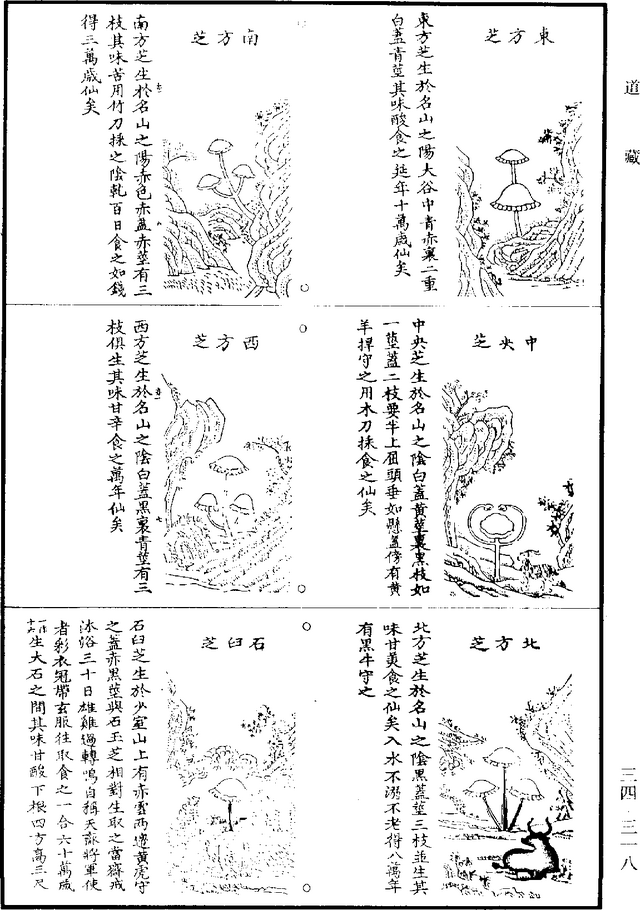 道藏
東方芝
東方芝生於名山之陽大谷中青赤裏二重
白蓋青莖其味酸食之延年十萬歲仙矣
南方芝
南方芝生於名山之陽赤色赤蓋赤莖有三
枝其味苦用竹刀採之陰乾百日食之如錢
得三萬歲仙矣
中央芝
中央芝生於名山之陰白蓋黃莖裏黑枝如
一莖蓋二枝要半上屈頭垂如縣蓋傍有黃
羊捍守之用木刀採食之仙矣
西方芝
西方芝生於名山之陰白蓋黑裏青莖有三
枝俱生其味甘辛食之萬年仙矣
北方芝
北方芝生於名山之陰黑蓋莖三枝並生其
味甘美食之仙矣入水不溺不老得八萬年
有黑牛守之
石臼芝
石臼芝生於少室山上有赤雲兩邊黃虎守
之蓋赤黑莖與石玉芝相對生取之當齋戒
沐浴三十日雄雞過轉鳴自稱天 將軍使
者彩衣冠帶玄服往取食之一合六十萬歲
生大石之間其味甘酸下根四方高三尺
三四—三一八